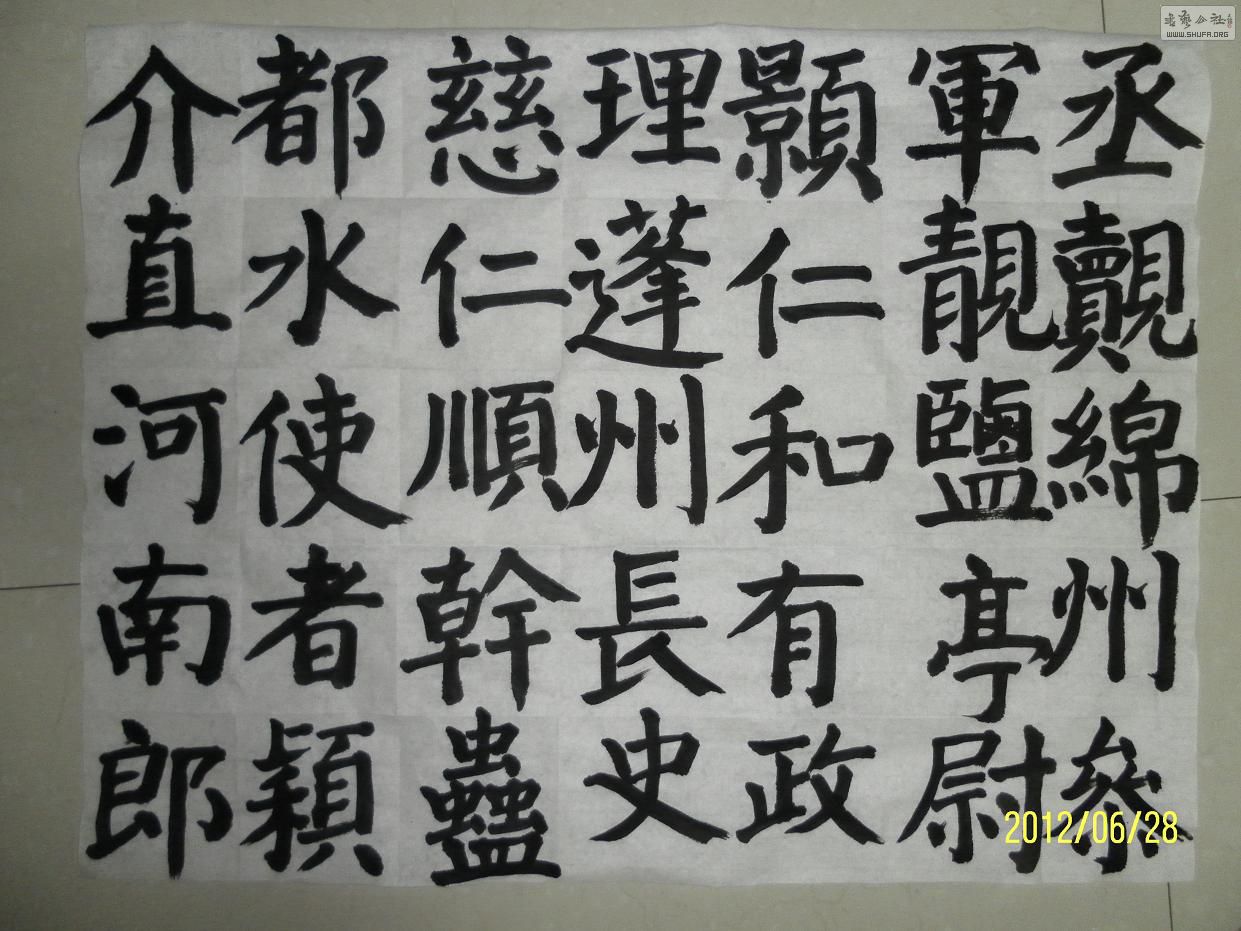 丞覿綿州參
軍靚鹽亭尉
顥仁和有政
理蓬州長史
慈仁順幹蠱
都水使者穎
介直河南郎
WWW.SHUFA.ORG
2012/06/28